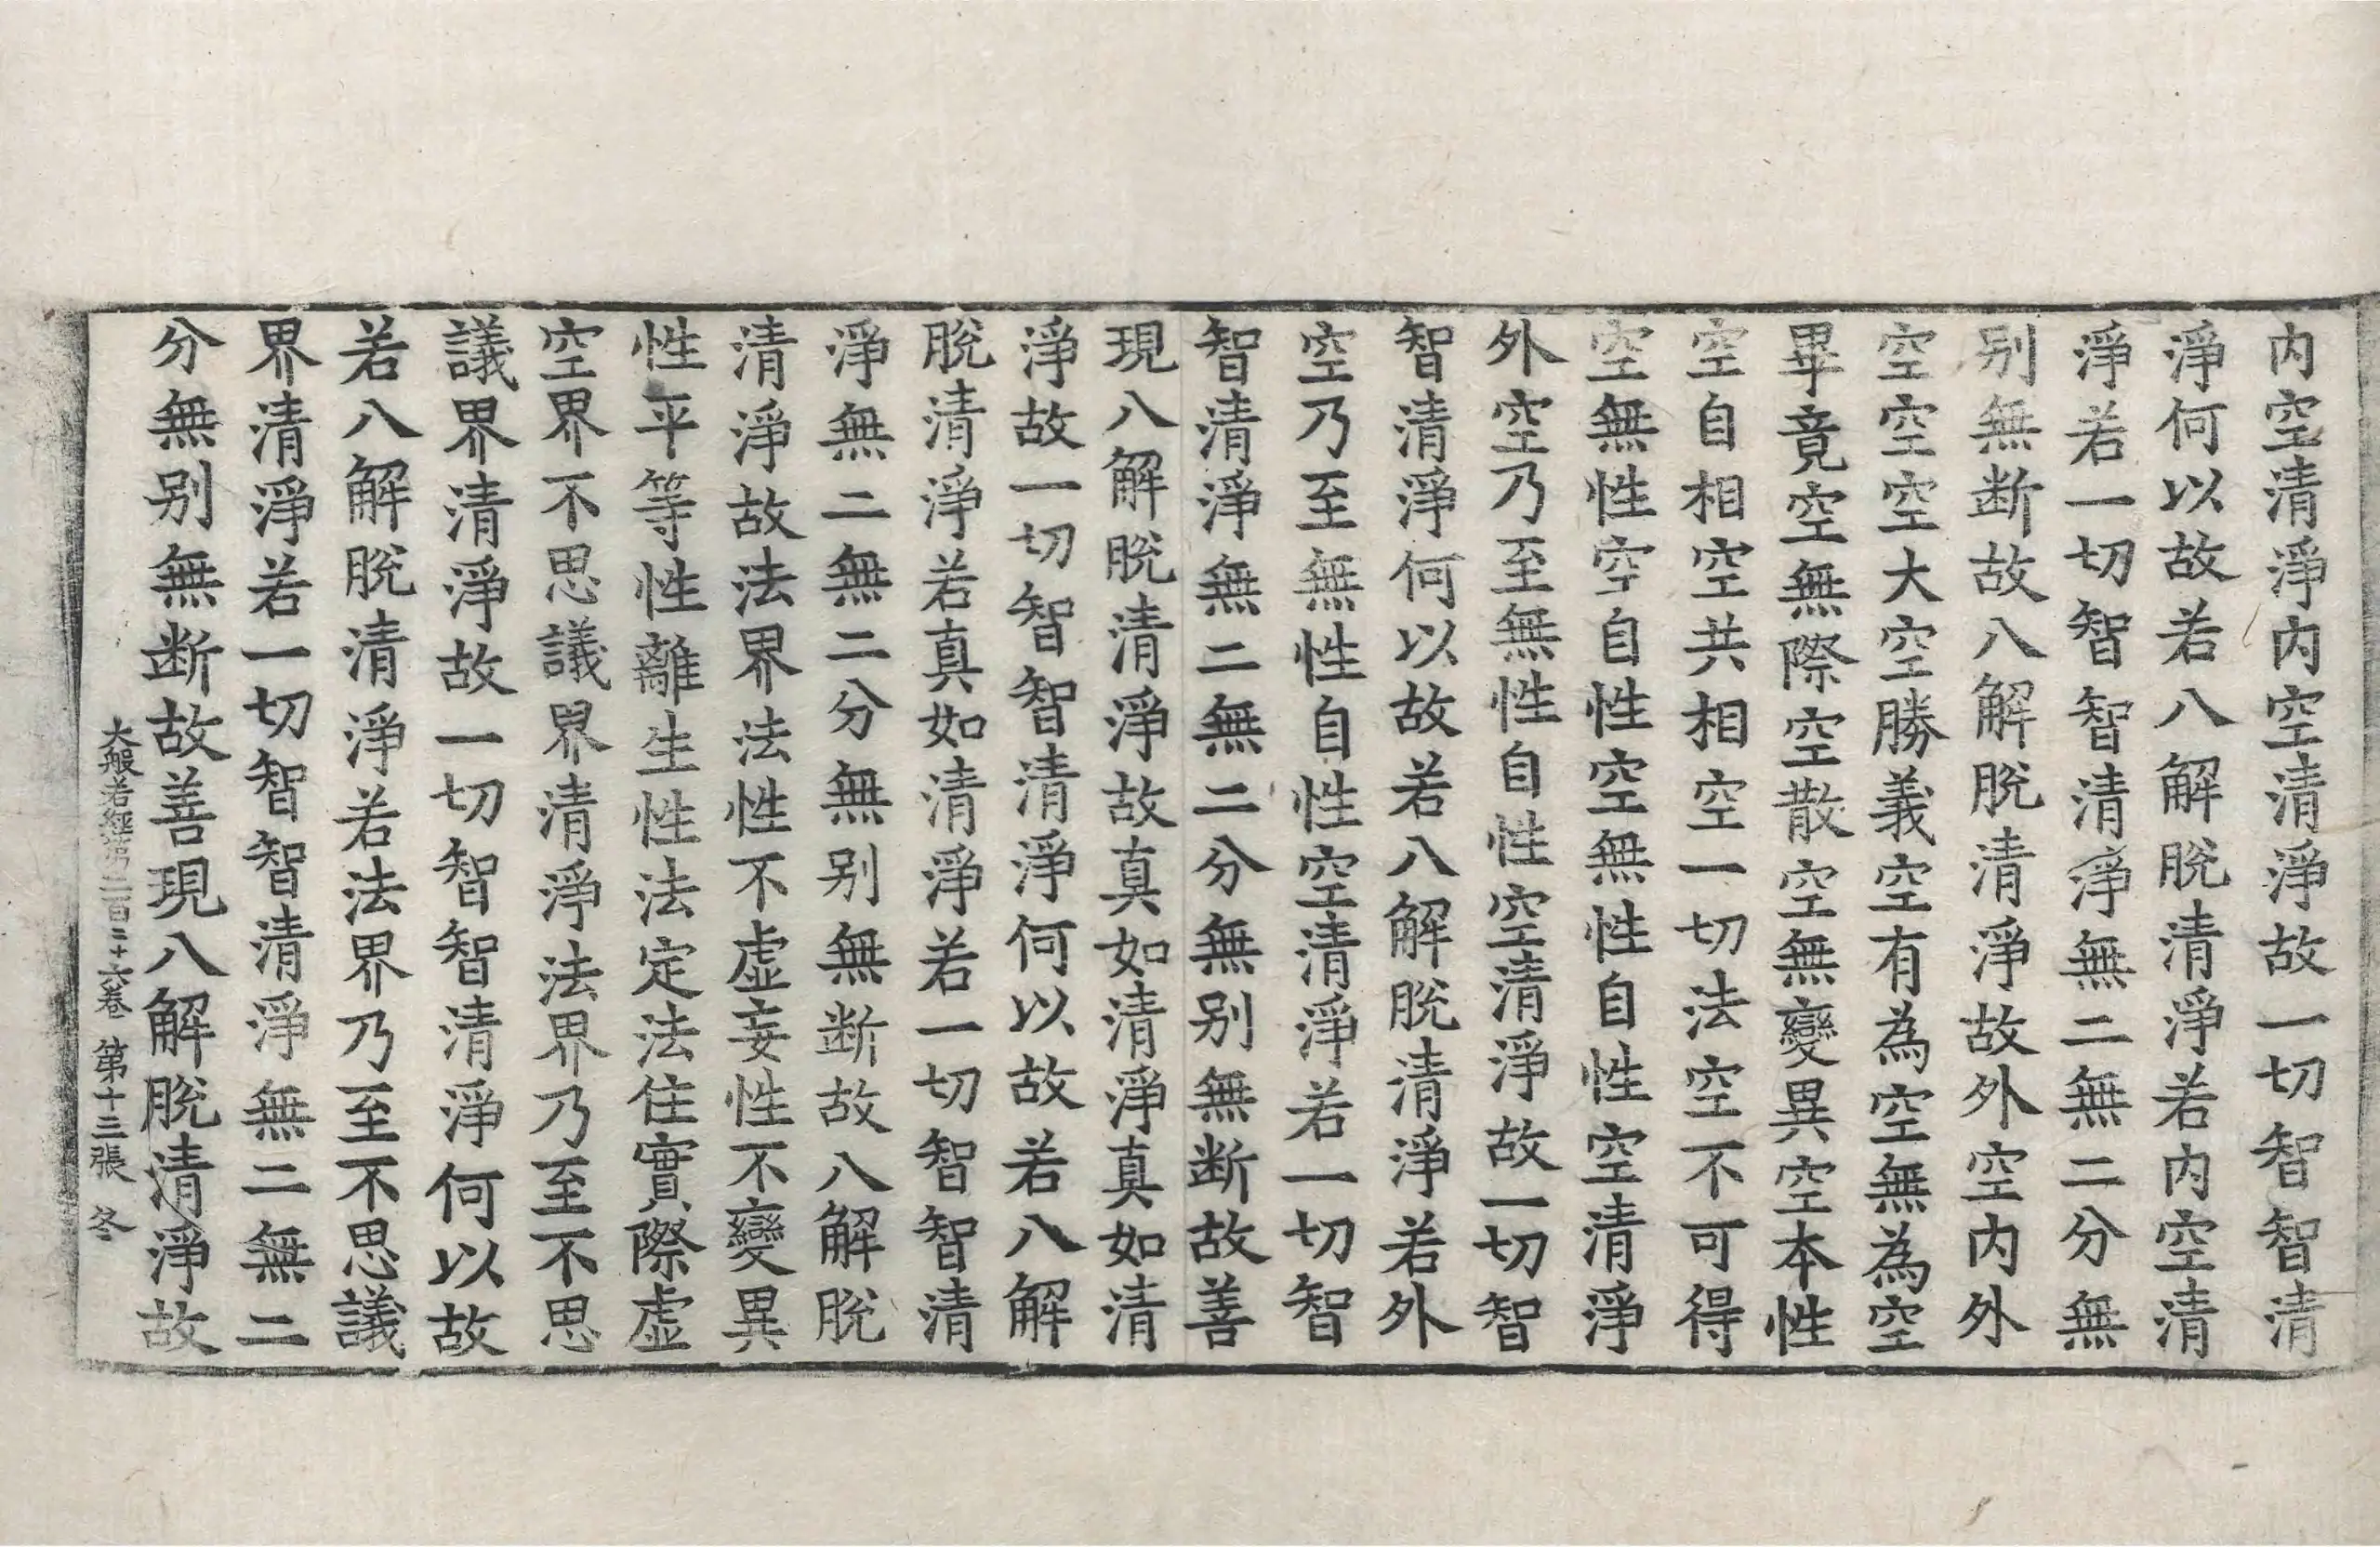 内空清淨内空清淨故一切智智清
淨何以故若八解脫清淨若内空清
淨若一切智智清淨無二無二分無
别無断故八解脫清淨故外空内外
空空空大空勝義空有為空無為空
畢竟空無際空散空無變異空本性
空自相空共相空一切法空不可得
空無性空自性空無性自性空清淨
外空乃至無性自性空清淨故一切智
智清淨何以故若八解脫清淨若外
空乃至無性自性空清淨若一切智
智清淨無二無二分無别無断故善
現八解脫清淨故真如清淨真如清
淨故一切智智清淨何以故若八解
脫清淨若真如清淨若一切智智清
淨無二無二分無别無断故八解脫
清淨故法界法性不虛妄性不變異
性平等性離生性法定法住實際虛
空界不思議界清淨法界乃至不思
議界清淨故一切智智清淨何以故
若八解脫清淨若法界乃至不思議
界清淨若一切智智清淨無二無二
分無别無断故善現八解脫清淨故
大般若經第二百二十六卷 第十三張 冬